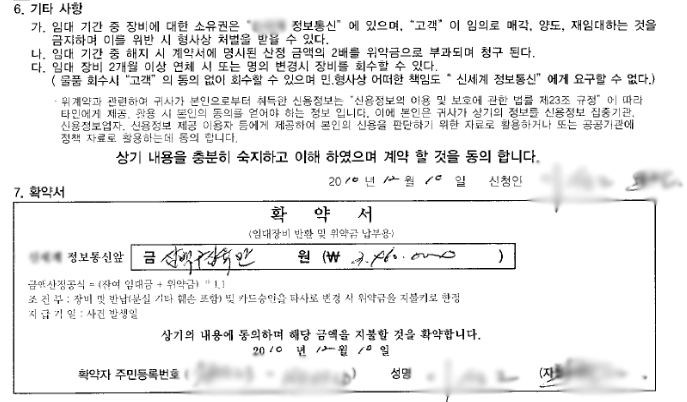 6. 기타 사항
가. 임대 기간 중 장비에 대한 소유권은 " 정보통신" 에 있으며, "고객" 이 임의로 매각, 양도, 재임대하는 것을
금지하며 이를 위반 시 형사상 처벌을 받을 수 있다.
나. 임대 기간 중 해지 시 계약서에 명시된 산정 금액의 2배를 위약금으로 부과되며 청구 된다.
다. 임대 장비 2개월 이상 연체 시 또는 명의 변경시 장비를 회수할 수 있다.
( 물품 회수시 "고객" 의 동의 없이 회수할 수 있으며 민.형사상 어떠한 책임도 " 신세계 정보통신" 에게 요구할 수 없다.)
위계약과 관련하여 귀사가 본인으로부터 취득한 신용정보는 "신용정보의 이용 및 보호에 관한 법률 제23조 규정" 에 따라
타인에게 제공, 활용 시 본인의 동의를 얻어야 하는 정보 입니다. 이에 본인은 귀사가 상기의 정보를 신용정보 집중기관,
신용정보업자, 신용정보 제공 이용자 등에게 제공하여 본인의 신용을 판단하기 위한 자료로 활용하거나 또는 공공기관에
정책 자료로 활용하는데 동의 합니다.
상기 내용을 충분히 숙지하고 이해 하였으며 계약 할 것을 동의 합니다.
2010 년 12 월 10 일 신청인
7. 확약서
확 약 서
(임대장비 반환 및 위약금 납부용)
정보통신앞 금 삼백구십육만 원 (₩ 3,960,000 )
금액산정공식 = (잔여 임대금 + 위약금) *
조 건 부 : 장비 및 반납(분실 기타 훼손 포함) 및 카드승인을 타사로 변경 시 위약금을 지불키로 한정
지 급 기 일 : 사건 발생일
상기의 내용에 동의하며 해당 금액을 지불할 것을 확약합니다.
2010 년 12 월 10 일
확약자 주민등록번호 ( ) 성명 (자